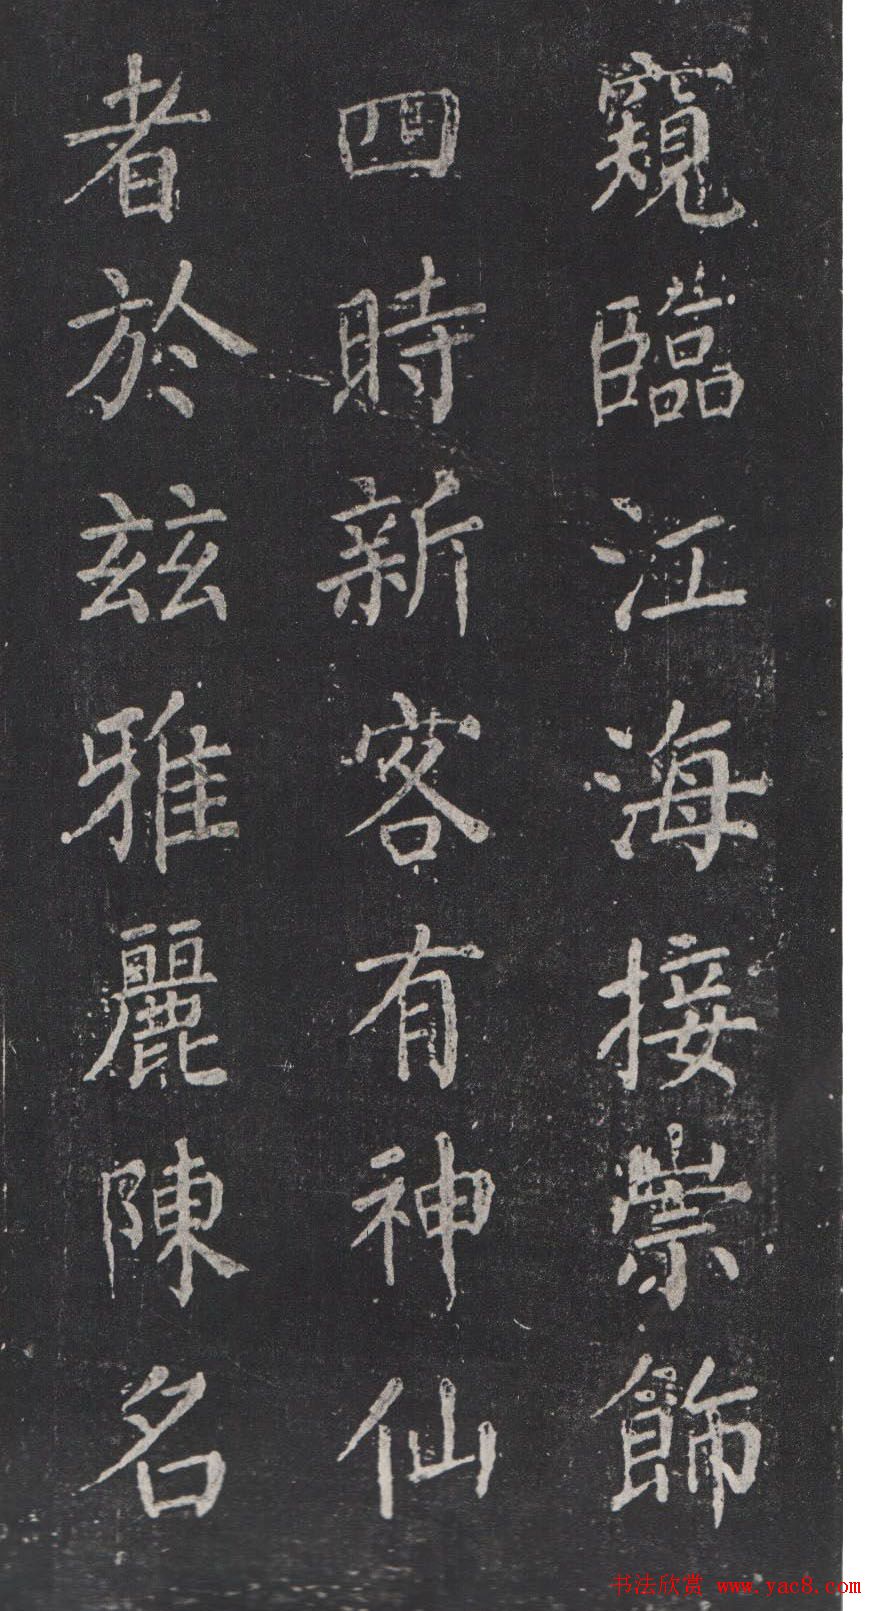 窺臨江海接崇飾
四時新客有神仙
者於茲雅麗陳名
书法欣赏 www.yac8.com